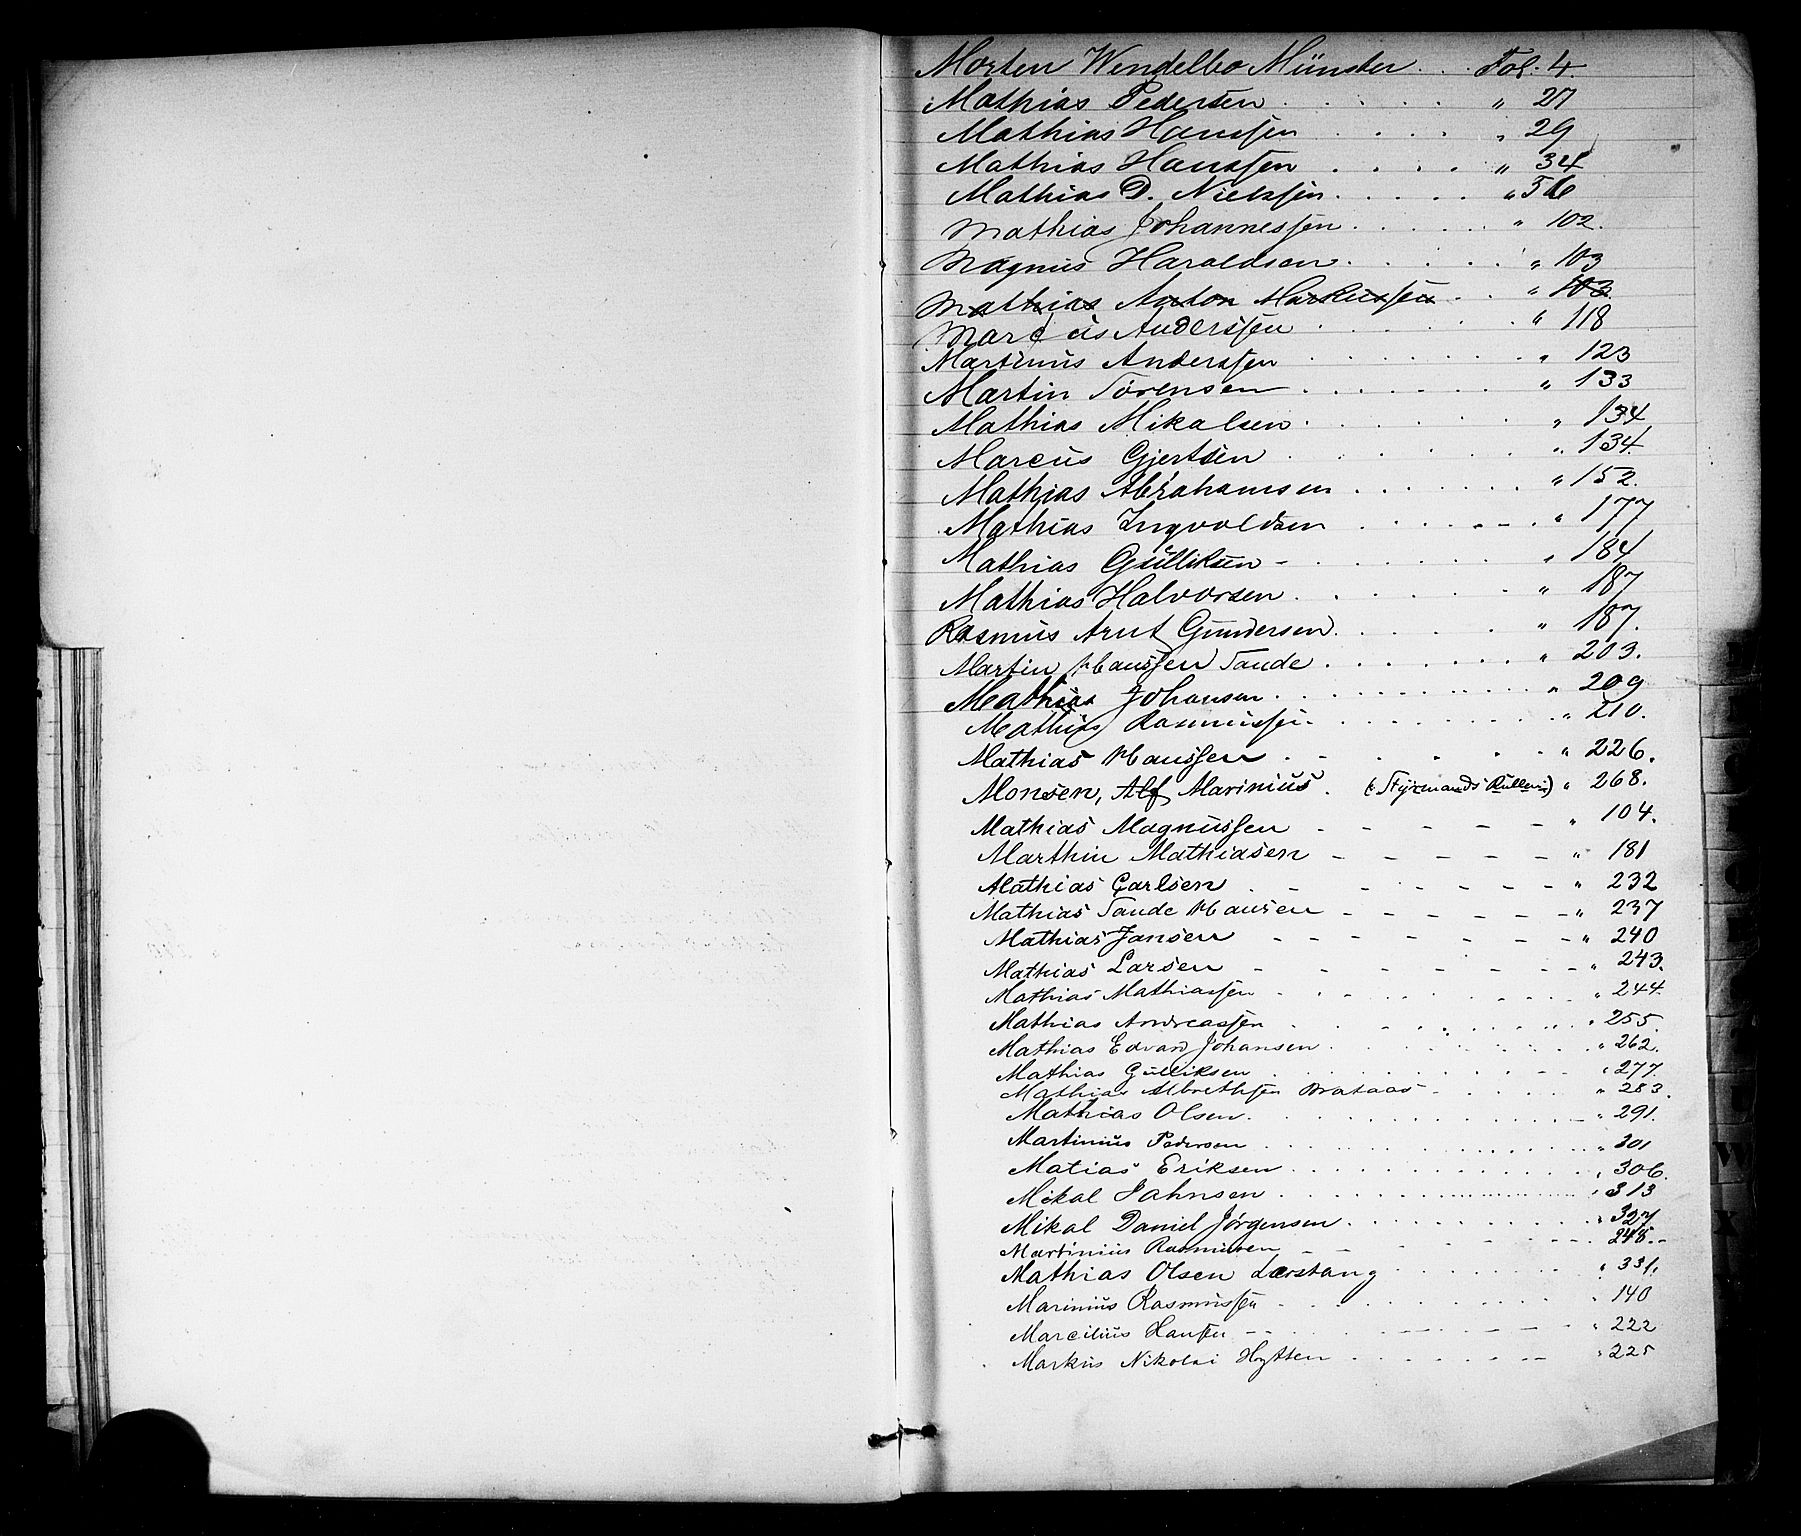 Morten Wendelbo Münster . . Fol. 4.
Mathias Pedersen . . . . . " 27
Mathias Hanssen . . . . " 29
Mathias Hanssen . . . . " 34
Mathias D. Nielssen . . . . . " 56
Mathias Johannessen . . . . . " 102.
Magnus Haraldsen . . . . . " 103
Mathias Anton Markussen . . " 103
Marcus Anderssen . . . . . " 118
Martinus Anderssen . . . . . " 123
Martin Sörensen . . . . . " 133
Mathias Mikalsen . . . . . " 134
Marcus Gjertsen . . . . . " 134.
Mathias Abrahamsen . . . . . " 152.
Mathias Ingvoldsen . . . . . " 177
Mathias Gulliksen - . . . . . " 184
Mathias Halvorsen . . . . . " 187
Rasmus Arnt Gundersen . . . . . " 187.
Martin Hanssen Tande . . . . . " 203.
Mathias Johansen . . . . . " 209
Mathias Rasmussen . . . . . " 210.
Mathias Hanssen . . . . . " 226.
Monsen, Alf Marinius . (i Styrmands Rullen) " 268.
Mathias Magnussen - - - - - " 104.
Marthin Mathiasen - - - - - " 181
Mathias Carlsen . - - - - - " 232
Mathias Tande Hansen - - - - - " 237
Mathias Jansen - - - - - " 240
Mathias Larsen - - - - - " 243.
Mathias Mathiassen . . . . . " 244.
Mathias Andreassen . . . . . " 255.
Mathias Edvard Johansen . . . . . " 262.
Mathias Gulliksen . . . . . " 277.
Mathias Albrethsen Brataas . . . . . " 283.
Mathias Olsen . . . . . " 291.
Martinius Pedersen . . . . . " 301
Matias Eriksen . . . . . " 306.
Mikal Jahnsen . . . . . " 313
Mikal Daniel Jörgensen . . . . . " 327
Martinius Rasmussen - - . . . " 248.-
Mathias Olsen Lærstang . . . . . " 331.
Marinius Rasmussen . . . . . " 140
Marcilius Hansen - - . . . " 222
Markus Nikolai Hytten . . . . . " 225
W
X